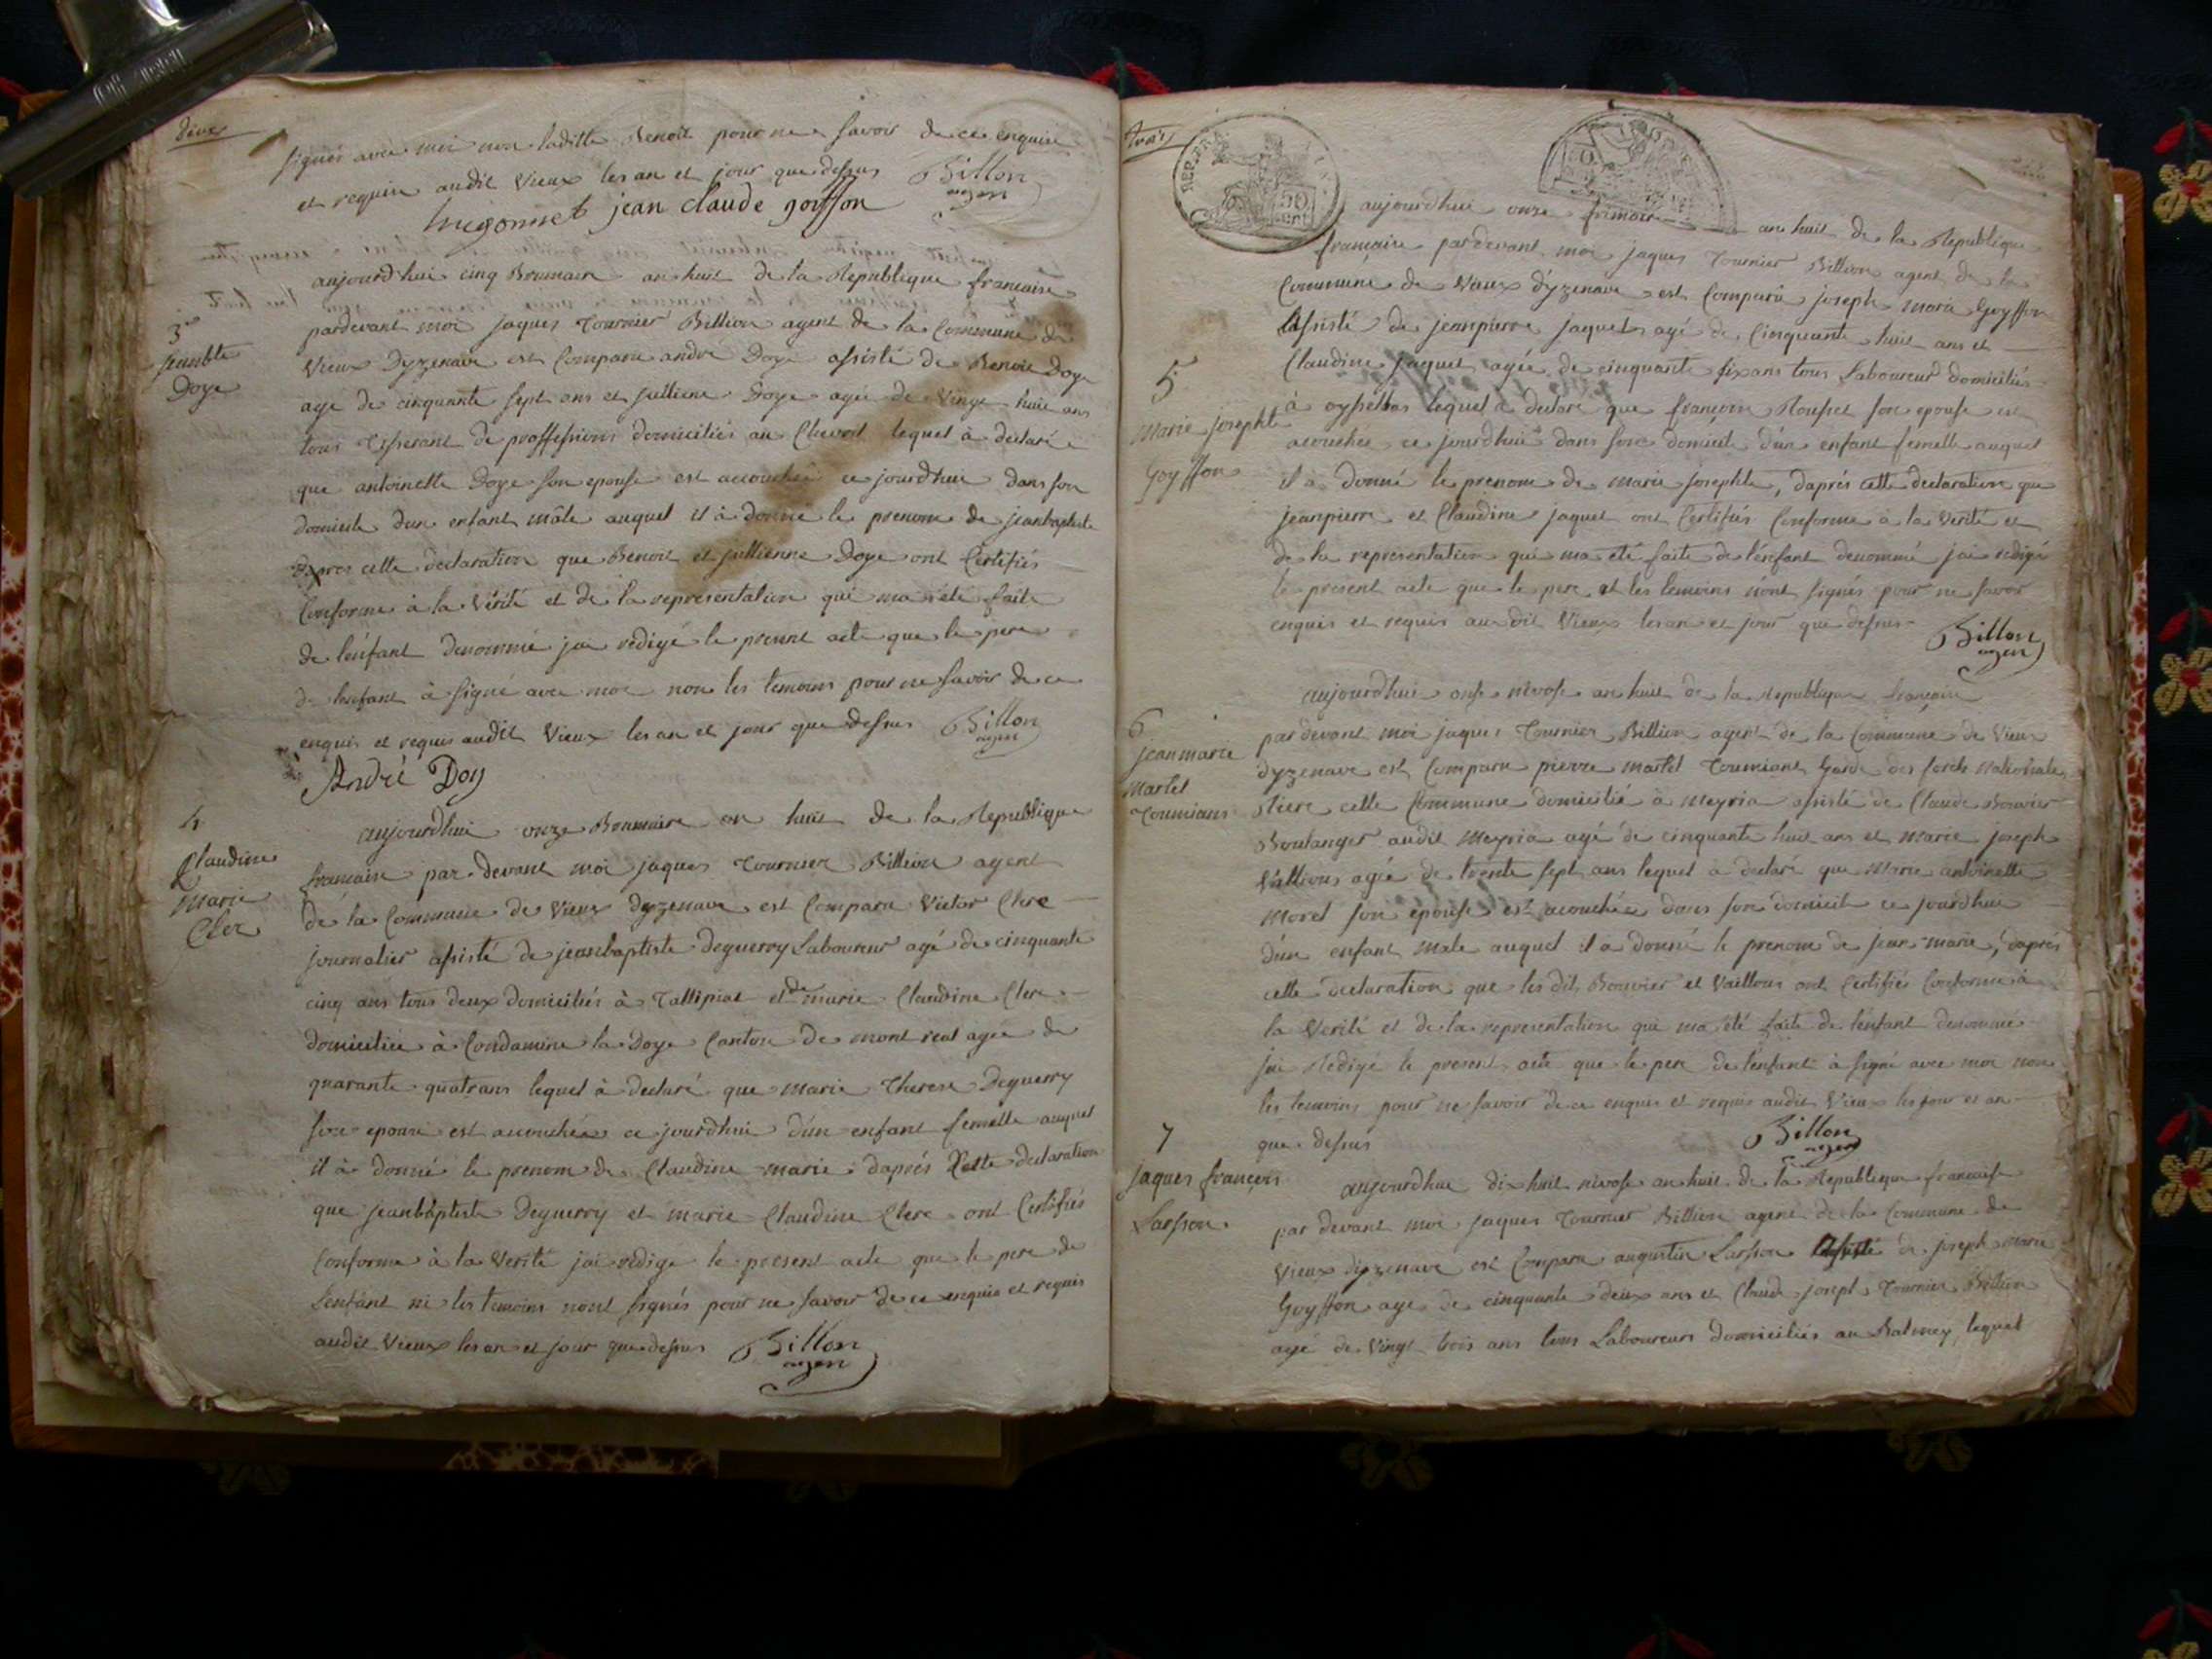 deux
signés avec moi non laditte Benoit pour ne savoir de ce enquise
et requise audit Vieux les an et jour que dessus Billon
agen
jean claude goiffon
aujourd'hui cinq Brumaire an huit de la Republique francaise
3
jeanbte
Doye
pardevant moi jaques Tournier Billion agent de la Commune de
Vieux Dyzenave est Comparu andre Doye assisté de Benoit Doye
age de cinquante sept ans et jullienne Doye agée de Vingt huit ans
tous Tisserant de proffessions domiciliés au Chevril lequel à declaré
que antoinette Doye son epouse est accouchée ce jourdhui dans son
domicile dun enfant mâle auquel il à donné le prenom de jeanbaptiste
Dapres cette déclaration que Benoit et jullienne Doye ont Certifiés
Conforme à la Vérité et de la representation qui ma été faite
de lenfant denommé jai redigé le present acte que le pere
de lenfant à signé avec moi non les temoins pour ne savoir de ce
enquis et requis audit Vieux les an et jour que dessus Billon
agen
André Doy
4
Claudine
Marie
Cler
aujourdhui onze Brumaire an huit de la Republique
francaise par devant moi jaques Tournier Billion agent
de la Commune de Vieux dyzenave est Comparu Victor Clere
journalier assisté de jeanbaptiste Deguerry Laboureur agé de cinquante
cinq ans tous deux domiciliés à Tallipiat et de marie Claudine Clere
domiciliée à Condamine la Doye Canton de mont real agée de
quarante quatrans lequel à declaré que marie Therese Deguerry
son epouse est accouchée ce jourdhui d'un enfant femelle auquel
il à donné le prenom de Claudine marie daprés Cette declaration
que jeanbaptiste Deguerry et marie Claudine Clere ont Certifiés
Conforme à la Verité jai redige le present acte que le pere de
Lenfant ni les temoins nont signés pour ne savoir de ce enquis et requis
audit Vieux les an et jour que dessus Billon
agen
trois
REP. FRA
50
cent
aujourdhui onze frimaire an huit de la Republique
francaise pardevant moi jaques Tournier Billion agent de la
Commune de Vieux d'yzenave est Comparu joseph marie Goyffon
assisté de jeanpierre jaquet agé de Cinquante huit ans et
Claudine jaquet agée de cinquante six ans tous Laboureur domiciliés
5
Marie josephte
Goyffon
à oysellas lequel à declaré que françoise Rousset son epouse est
acouchée ce jourdhui dans son domicile d'un enfant femelle auquel
il à donné le prenom de marie josephte, daprés cette declaration que
jeanpierre et Claudine jaquet ont Certifiés Conforme à la Verité et
de la representation qui ma eté faite de lenfant denommé jai redigé
le present acte que le pere et les temoins n'ont signés pour ne savoir
enquis et requis au dit Vieux les an et jour que dessus
Billon
agen
aujourdhui onse nivose an huit de la republique francaise
6
jeanmarie
Martel
Toumians
pardevant moi jaques Tournier Billion agent de la Commune de Vieux
dyzenave est Comparu pierre martel Toumiant Garde des forets Nationales
stiere cette Commune domicilié à Meyria assisté de Claude Bouvier
Boulanger audit Meyria agé de cinquante huit ans et marie joseph
Vaillous agée de trente sept ans lequel à declaré que Marie antoinette
Morel son epouse est acouchée dans son domicile ce jourdhui
d'un enfant male auquel il a donné le prenom de jean marie, daprés
cette declaration que les dit Bouvier et Vaillous ont Certifiés Conforme à
la Verité et de la representation qui ma eté faite de lenfant denommé
jai Redigé le present acte que le pere de lenfant à signé avec moi non
les temoins pour ne savoir de ce enquis et requis audit Vieux les jour et an
que dessus Billon
agen
7
jaques françois
Larsson
aujourdhui dix huit nivose an huit de la Republique francaise
par devant moi jaques Tournier Billion agent de la Commune de
Vieux dyzenave est Comparu augustin Larsson assisté de joseph marie
Goyffon agé de cinquante deux ans et Claude joseph Tournier Billion
agé de Vingt trois ans tous Laboureurs domiciliés au Balmey lequel